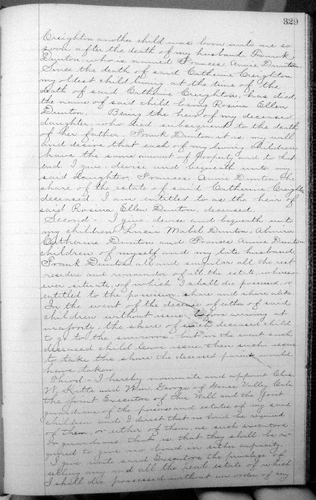 329
Creighton another child was born unto me so
soon after the death of my husband Frank
Dunton who is named Frances Annie Dunton
Since the death of said Catherine Creighton
my oldest child living at the time of the
death of said Catherine Creighton has died
the name of said child being Rosina Ellen
Dunton. Being the heir of my deceased
daughter who died subsequent to the death
of her father Frank Dunton it is my will
and desire that each of my living children
have the same amount of property and to that
end I give devise and bequeath unto my
said daughter Frances Annie Dunton the
share of the estate of said Catherine Creighton
deceased I am entitled to as the heir of
said Rosina Ellen Dunton, deceased.
Second. I give devise and bequeath unto
my children Mabel Dunton, Almira
Catharine Dunton and Frances Annie Dunton
children of myself and my late husband
Frank Dunton, all and singular all the rest
residue and remainder of all the estate, whereso-
ever situate, of which I shall die possessed, or
entitled to the same share and share alike
In the event of the decease of either of said
children without issue, before arriving at
majority, the share of said deceased child
to go to the survivors, but in the event such
deceased child leave issue then such issue
to take the share the deceased parent would
have taken.
Third. I hereby nominate and appoint Chas
and George of Valley Cal.
the joint Executors of this Will and the joint
guardians of the persons and estates of my said
children and I direct that no bond be required
of them or either of them, as such executors
or guardians that is that they shall be re-
quired to give no bond in either capacity.
I give unto said Executors the privilege of
selling any and all the real estate of which
I shall die possessed without an order of any